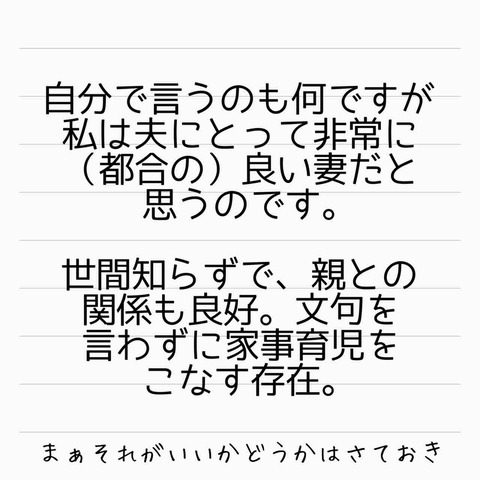 自分で言うのも何ですが
私は夫にとって非常に
（都合の）良い妻だと
思うのです。
世間知らずで、親との
関係も良好。文句を
言わずに家事育児を
こなす存在。
まぁそれがいいかどうかはさておき